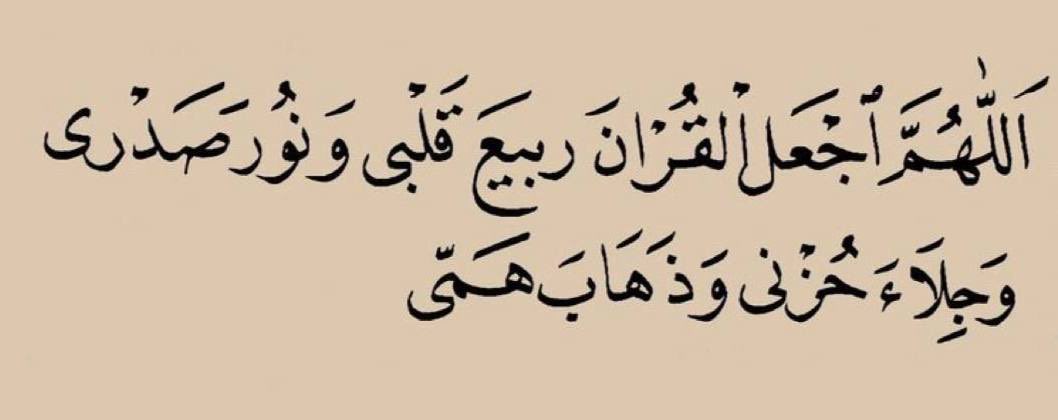 اَللّٰهُمَّ ٱجْعَلْ الْقُرْانَ رَبيعَ قَلْبى وَ نُورَ صَدْرى
وَجِلَاءَ حُزْنى وَ ذَهَابَ هَمّى